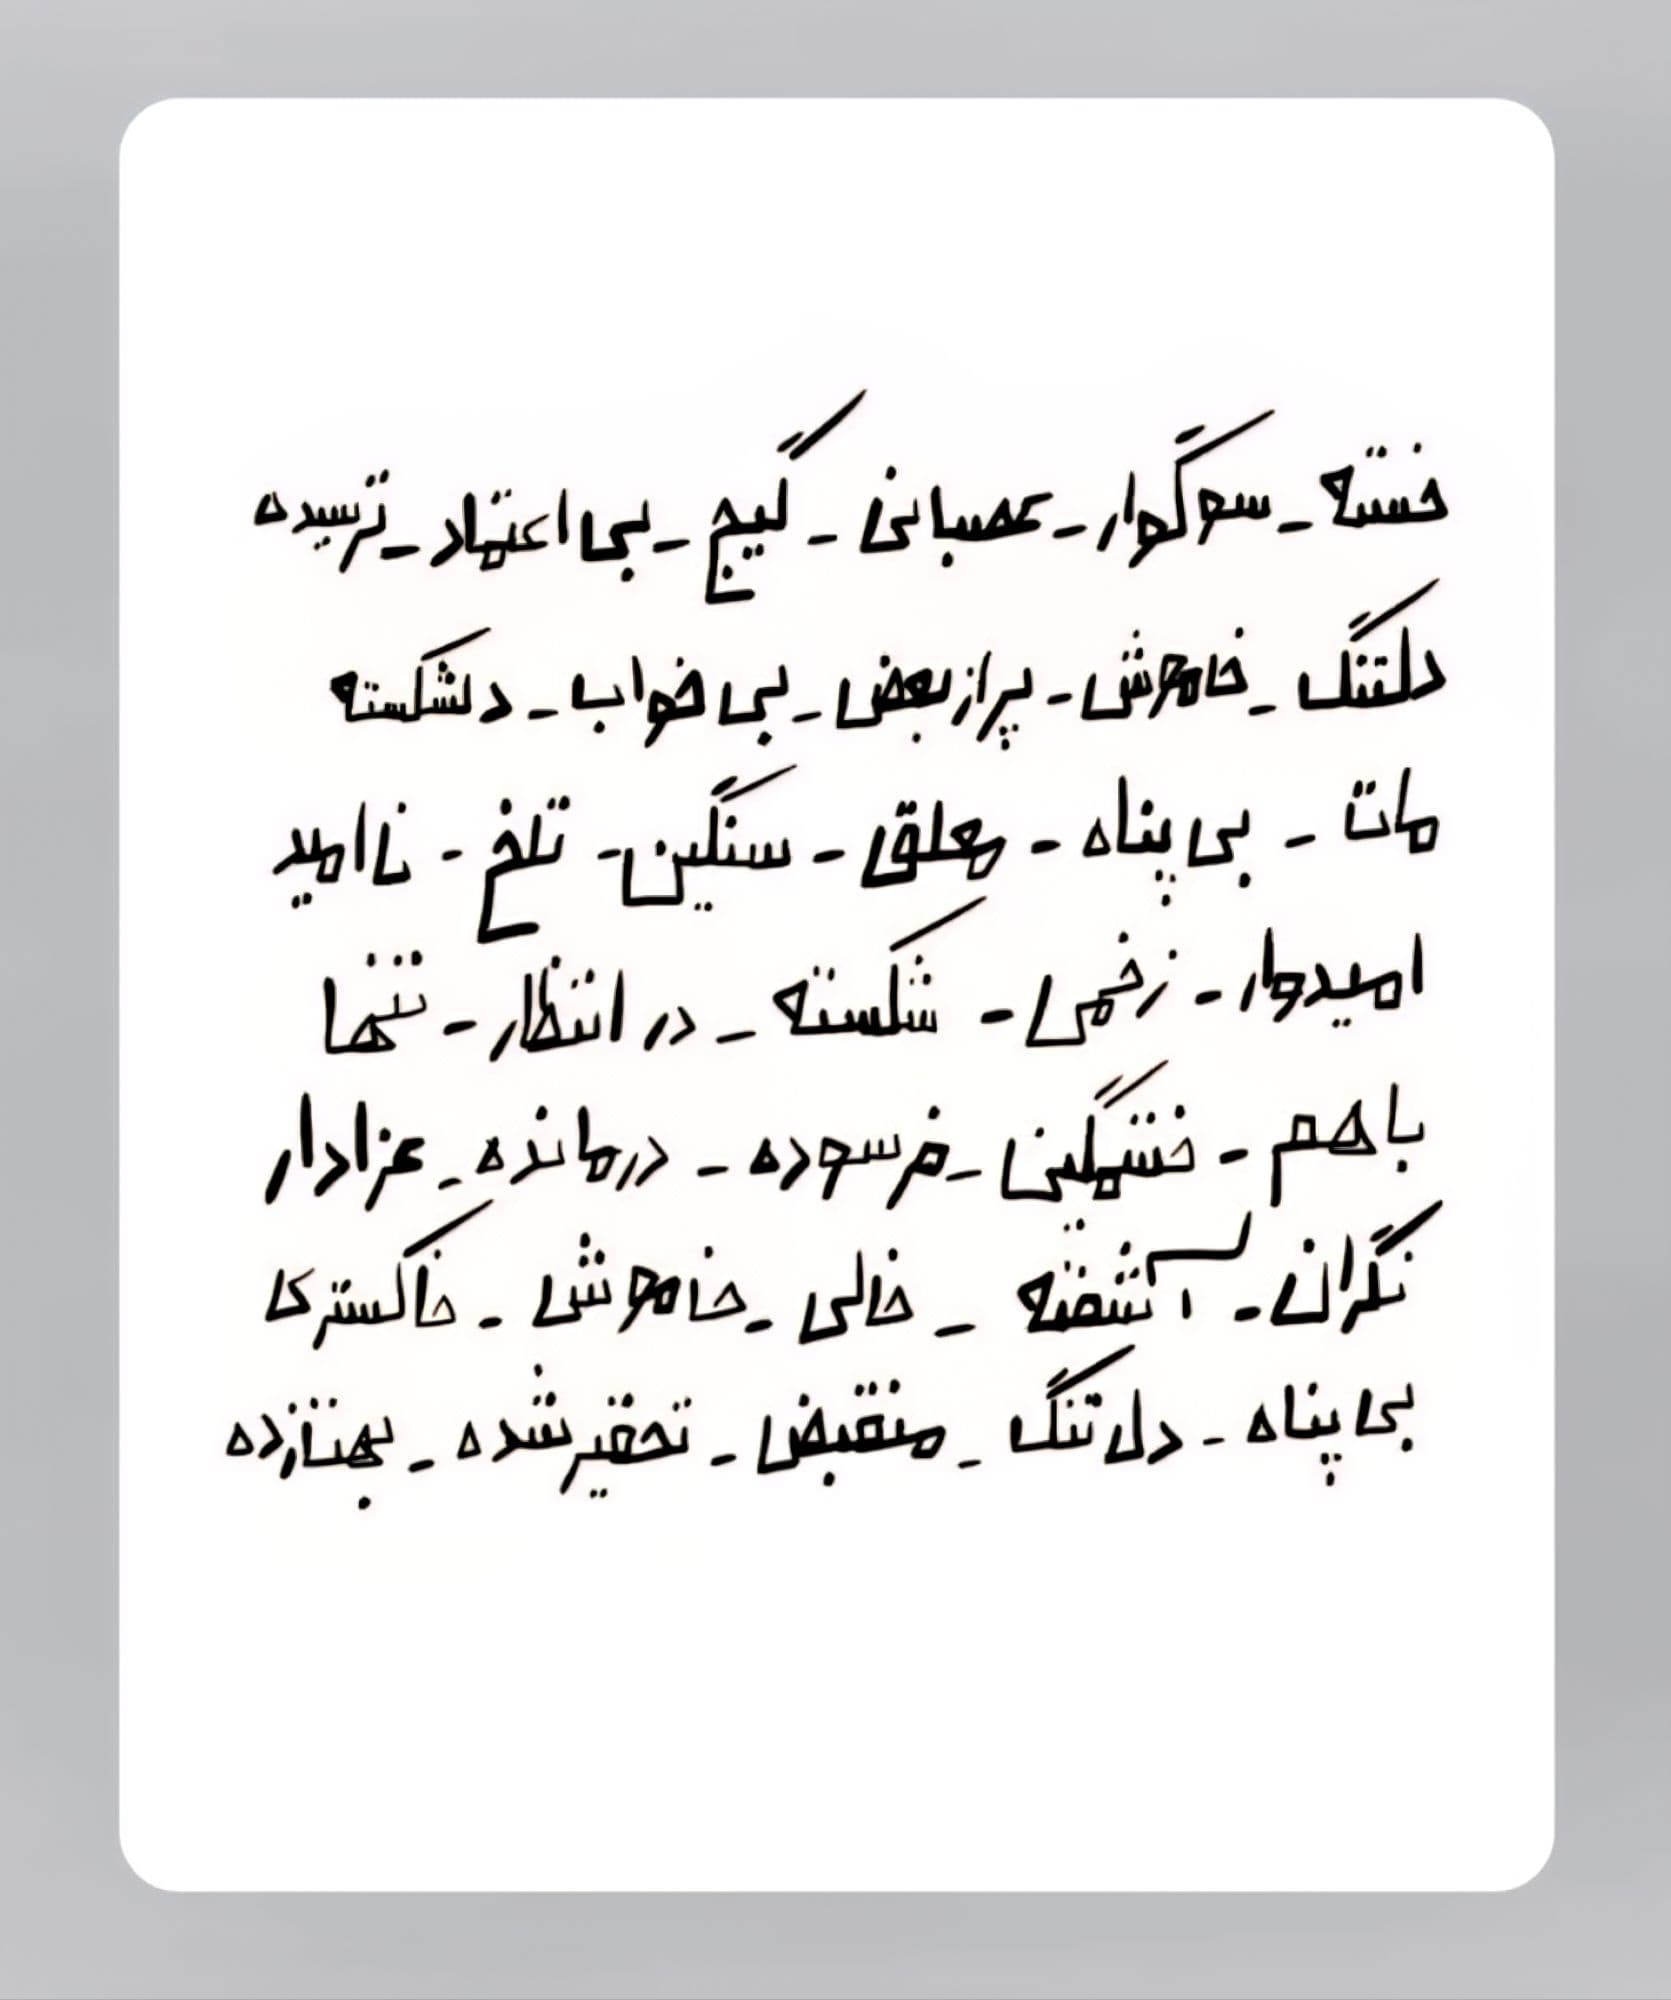 خسته - سوگوار - عصبانی - گیج - بی اعتماد - ترسیده
دلتنگ - خاموش - پر از بغض - بی خواب - دلشکسته
مات - بی پناه - معلق - سنگین - تلخ - ناامید
امیدوار - زخمی - شکسته - در انتظار - تنها
باهم - خشمگین - فرسوده - درمانده - عزادار
نگران - آشفته - خالی - خاموش - خاکستری
بی پناه - دل تنگ - منقبض - تحقیر شده - بهت زده